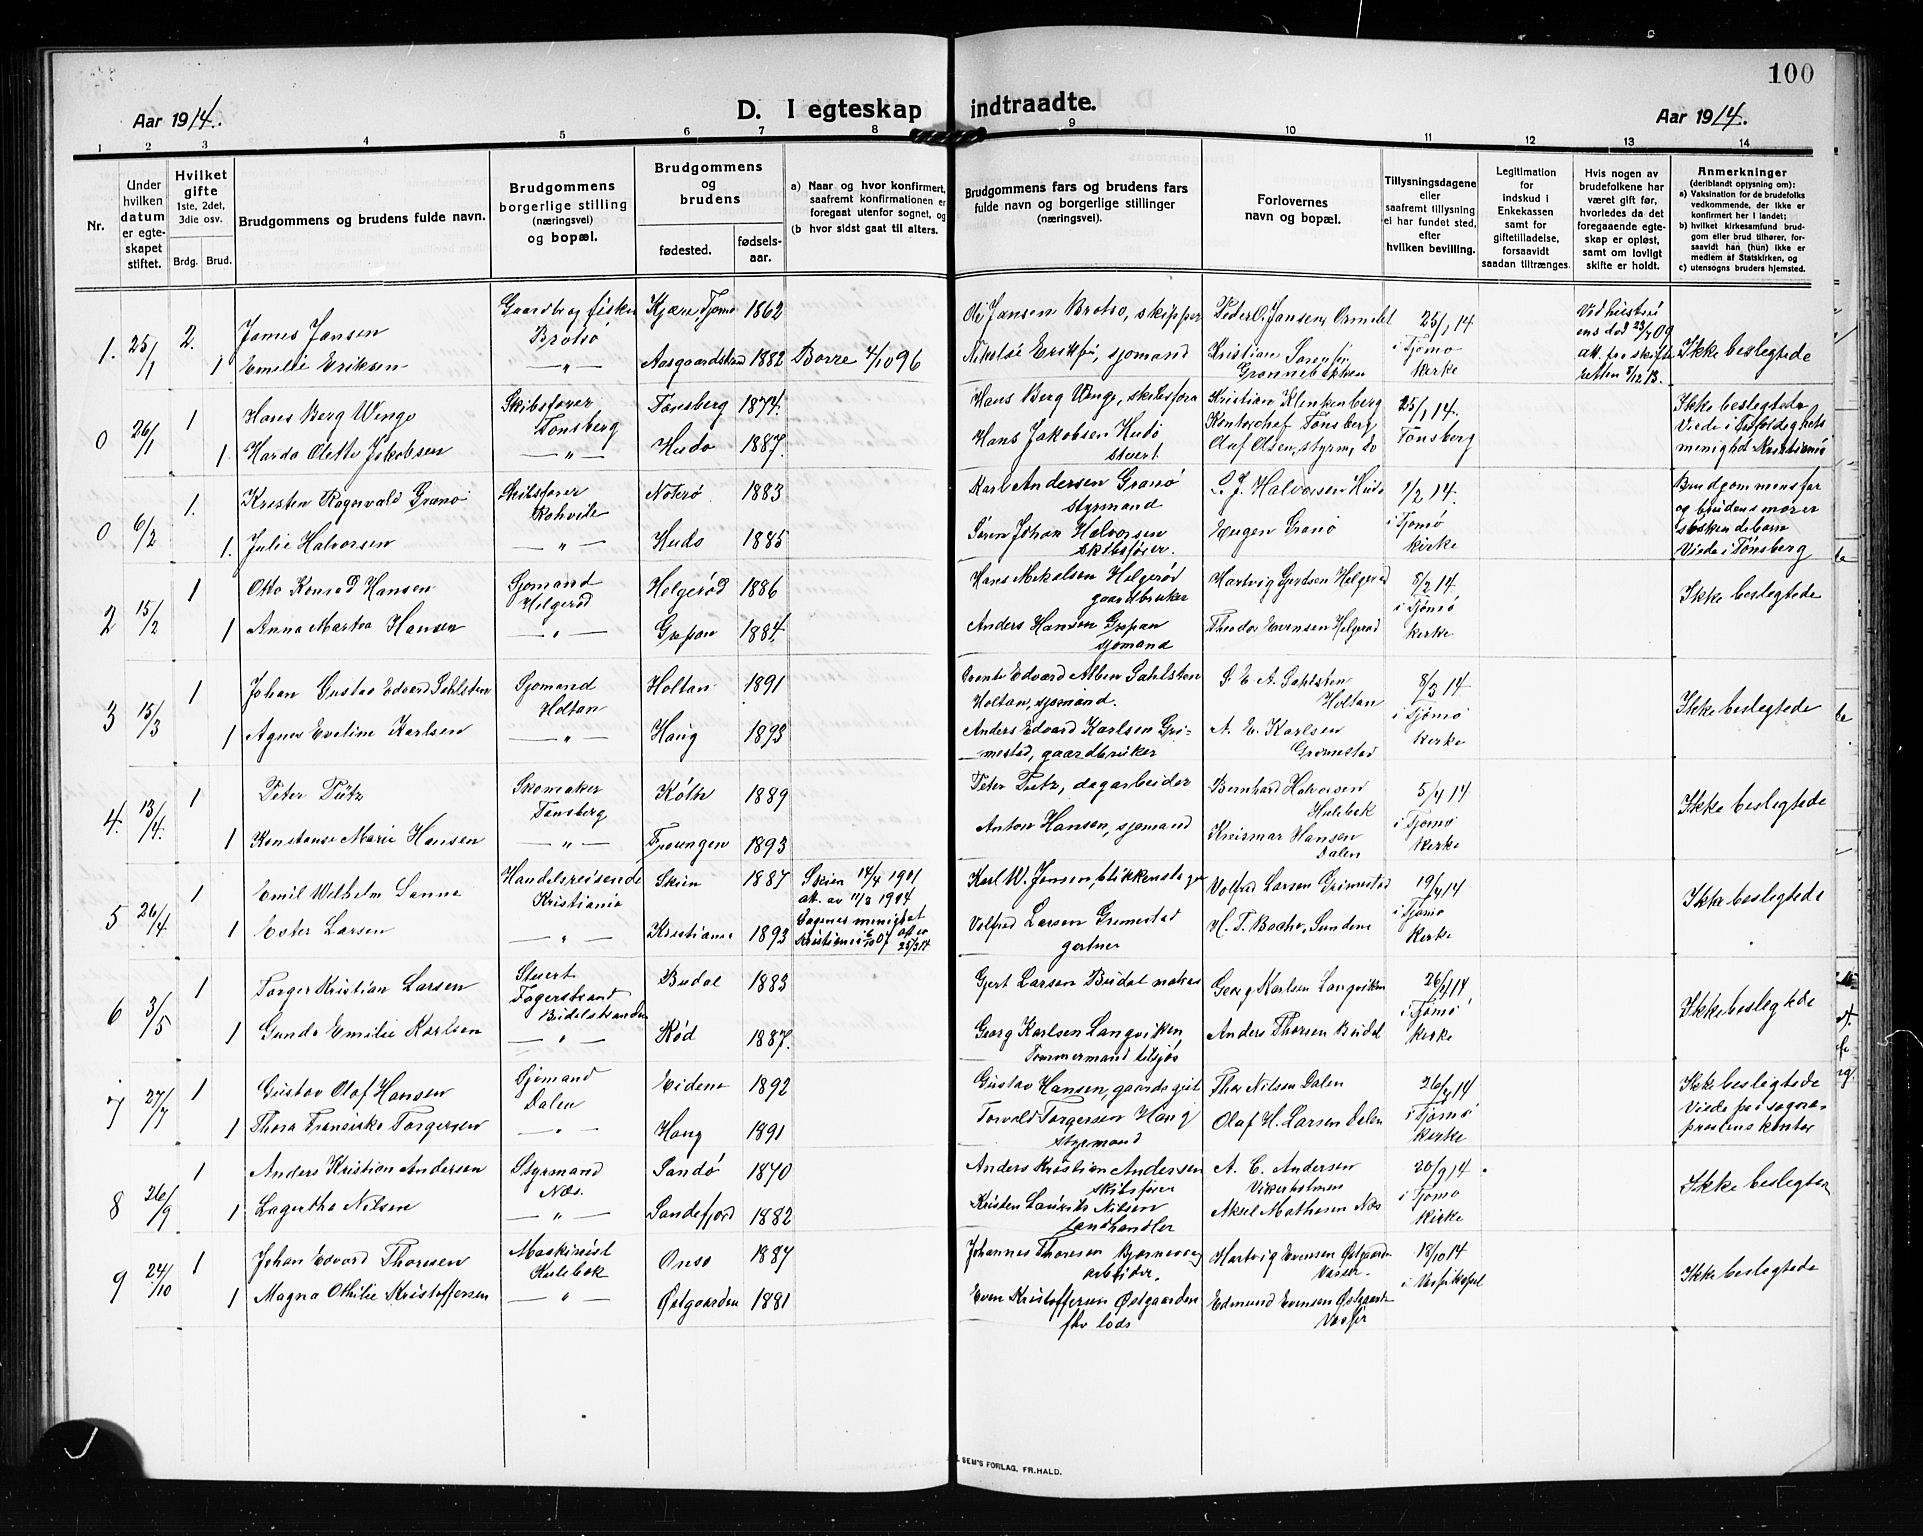 100
Aar 1914.
D. I egteskap indtraadte.
Aar 1914.
1 2 3 4 5 6 7 8 9 10 11 12 13 14
Nr.
Under hvilken datum er egteskapet stiftet.
Hvilket gifte 1ste, 2det, 3die osv.
Brdg. Brud.
Brudgommens og brudens fulde navn.
Brudgommens borgerlige stilling (næringsvei) og bopæl.
Brudgommens og brudens
fødested.
fødselsaar.
a) Naar og hvor konfirmert, saafremt konfirmationen er foregaat utenfor sognet, og
(b hvor sidst gaat til alters.
Brudgommens fars og brudens fars fulde navn og borgerlige stillinger (næringsvei).
Forlovernes navn og bopæl.
Tillysningsdagene eller saafremt tillysning ei har fundet sted, efter hvilken bevilling.
Legitimation for Indskud i Enkekassen samt for giftetilladelse, forsaavidt saadan tiltrænges.
Hvis nogen av brudefolkene har været gift før, hvorledes da det foregaaende egteskap er opløst, samt om lovligt skifte er holdt.
Anmerkninger (deriblandt opjysning om):
a) Vaksination for de brudefolks vedkommende, der ikke er konfirmert her i landet;
b) hvilket kirkesamfund brudgom eller brud tilhører, forsaavidt han (hun) ikke er medlem af Statskirken, og
c) utensogns bruders hjemsted.
1. 25/1 2. James Jansen Gaardbr og fisker Brøtsø Kjære, Tjømø 1862 Ole Jansen Brøtsø, skipper Peder O. Jansen, Ormelet 25/1 14 i Tjømø kirke
1 Emilie Eriksen — " — Aasgaardstrand 1882 Borre 4/10 96 Kristian Ikke beslegtede
0 26/1 1 Hans Berg Wenge Skibsfører Tønsberg Tønsberg 1874 Hans Berg Wenge, skibsfører Kristian Klinkenberg Kontorchef Tønsberg 25/1 14. Tønsberg
1. Harda Olette Jakobsen — " — Hudø 1887. Hans Jakobsen Hudø stuert Olaf Olsen, styrm, do Ikke beslegtede Viede i
0 6/2 1. Kristen Ragnvald Granø Skibsfører Rohvile Nøterø 1883 Karl Andersen Granø styrmand Halvorsen Hudø 1/2 14. i Tjømø kirke
1. Julie Halvorsen — " — Hudø 1885 Søren Johan Halvorsen skibsfører. Eugen Granø Brudgommens far og brudens mor er søskendebørn Viede i Tønsberg
2 15/2 1 Otto Konrad Hansen Sjømand Helgerød Helgerød 1886 Hans Mikalsen Helgerød gaardbruker Hartvig Gjertsen Helgerød 8/2 14. i Tjømø kirke
1 Anna Martea Hansen — " — Grepan 1884. Anders Hansen Grepan sjømand Theodor Evensen Helgerød Ikke beslegtede
3 15/3 1 Johan Gustav Edvard Sahlsten Sjømand Holtan Holtan 1891 Edvard Albin Sahlsten Holtan, sjømand. S. E. A. Sahlsten Holtan 8/3 14 i Tjømø kirke
1 Agnes Eveline Karlsen — " — Haug 1893 Anders Edvard Karlsen Grimestad, gaardbruker A. E. Karlsen Grimestad Ikke beslegtede
4. 13/4. 1 Peter Tütz Skomaker Tønsberg Köthe 1889 Peter Tütz, dagarbeider Bernhard Halvorsen Hulebak 5/4 14 i Tjømø kirke
1 Konstanse Marie Hansen — " — 1893 Anton Hansen, sjømand Hansen Dalen Ikke beslegtede
5 26/4. 1 Emil Wilhelm Sanne Handelsreisende Kristiania Skien 1887 Skien 14/4 1901 Karl W. Jensen, blikkenslager Volfred Larsen Grimestad 19/4 14 i Tjømø kirke
1 Ester Larsen — " — Kristiania 1893 Volfred Larsen Grimestad gartner Sundene Ikke beslegtede
6 3/5 1 Torger Kristian Larsen Stuert Fagerstrand Budal 1883 Gjert Larsen Budal Georg Karlsen Langviken 26/4 14 i Tjømø kirke
1 Gunda Emilie Karlsen — " — Rød 1887. Georg Karlsen Langviken, Tømmermand tilsjøs Anders Thoresen Budal Ikke beslegtede
7 27/7 1 Gustav Olaf Hansen Sjømand Dalen Eidene 1892 Gustav Hansen, gaardsgut Thor Nilsen Dalen 26/4 14 i Tjømø kirke
1 Thora Fransiska Torgersen — " — Haug 1891 Torvald Torgersen Haug styrmand Olaf H. Larsen Dalen Ikke beslegtede Viede paa sogneprestens kontor
8 26/9 1 Anders Kristian Andersen Styrmand Næs. Sandø 1870 Anders Kristian Andersen skibsfører A. C. Andersen Vikerholmen 20/9 14 i Tjømø kirke
1 Lagertha Nilsen — " — Sandefjord 1882 Kristen Laurits Nilsen landhandler Aksel Mathesen Næs Ikke beslegtede
9 24/10 1 Johan Edvard Thoresen Maskinist Hulebak Onsø 1887 Johannes Thoresen arbeider. Hartvig Evensen Østgaarden Vasser. 18/10 14
1 Magna Othilie Kristoffersen — " — Østgaarden 1881 Even Kristoffersen Østgaarden fhv lods Edmund Evensen Østgaarden Vasser Ikke beslegtede
SEM'S FORLAG, FR.HALD.